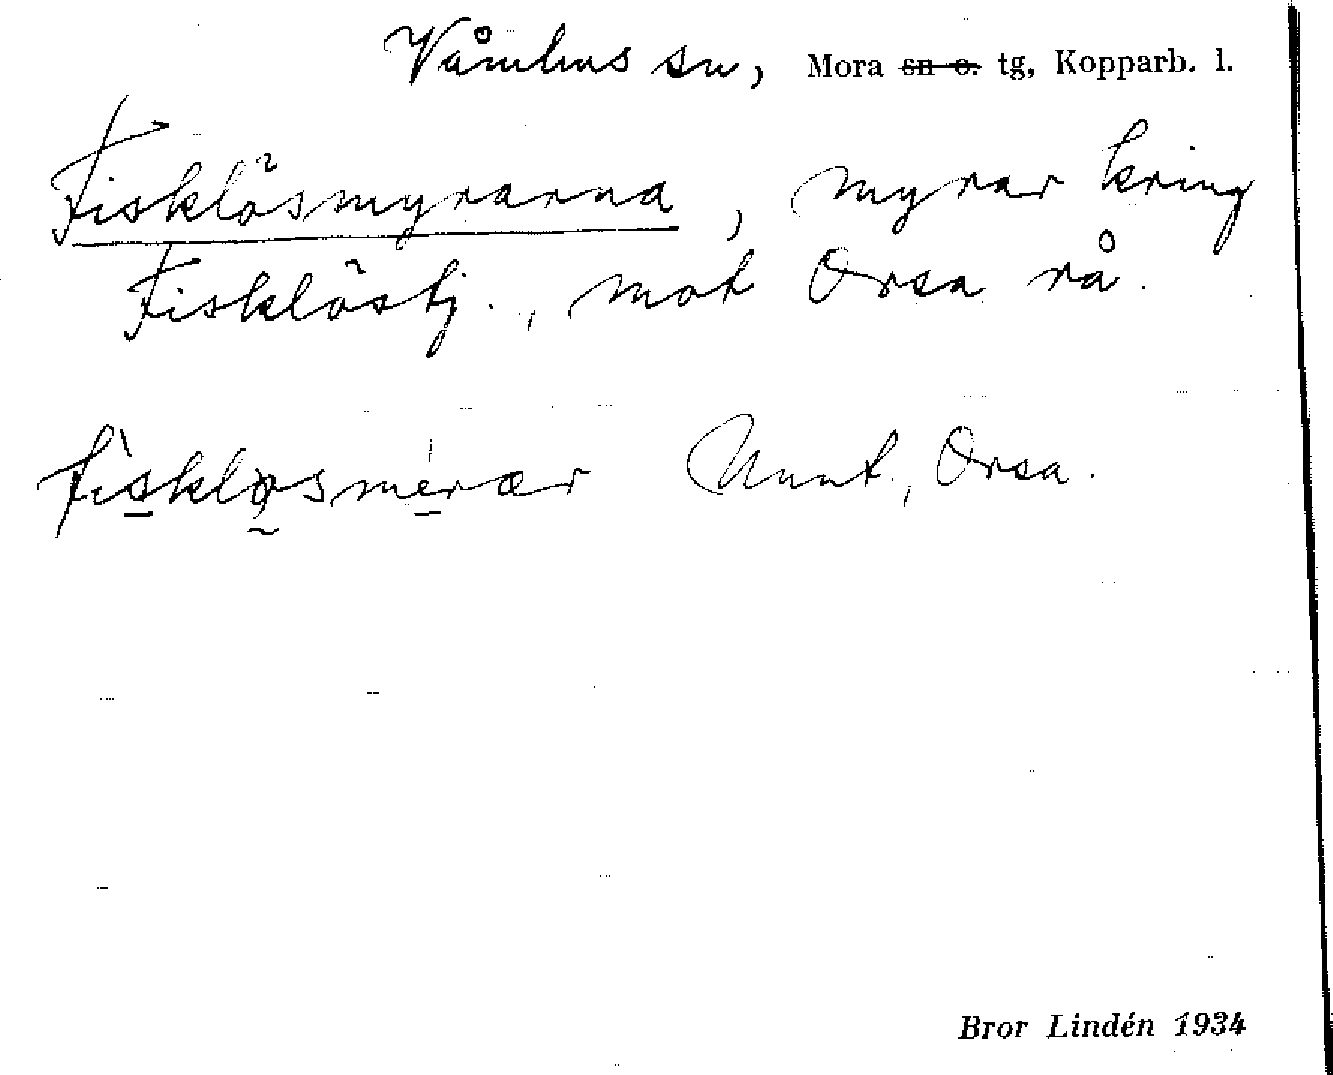 Våmhus sn, Mora sn o. tg, Kopparb. l.
Fisklösmyrarna, myrar kring
Fisklöstj., mot Orsa rå.
fìsklo̰smerær Nunt., Orsa.
Bror Lindén 1934